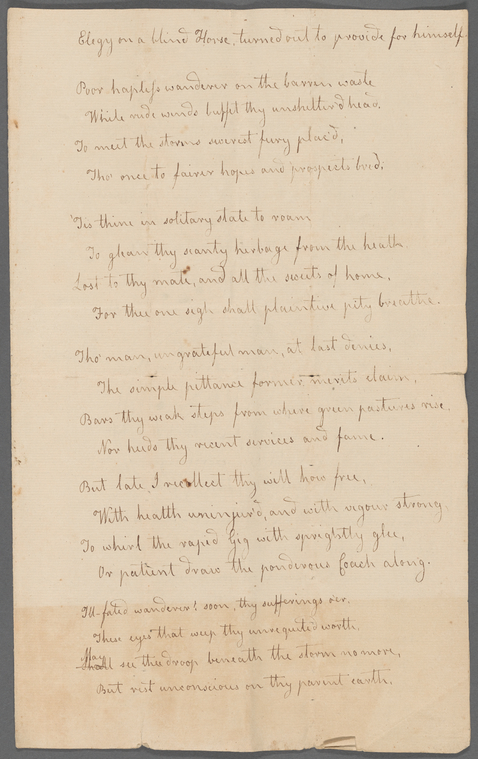 Elegy on a blind Horse, turned out to provide for himself.
Poor hapless wanderer on the barren waste
While rude winds buffet thy unshelter'd head,
To meet the storms severest fury plac'd,
Tho' once to fairer hopes and prospects bred;
'Tis thine in solitary state to roam
To glean thy scanty herbage from the heath
Lost to thy mate, and all the sweets of home,
For thee one sigh shall plaintive pity breathe.
Tho' man, ungrateful man, at last denies,
The simple pittance former merits claim,
Bars thy weak steps from where green pastures rise.
Nor heeds thy recent services and fame.
But late, I recollect thy will how free,
With health uninjur'd, and with vigour strong
To whirl the raped Gig with sprightly glee,
Or patient draw the ponderous Coach along.
Ill-fated wanderer! soon, thy sufferings o'er,
These eyes that weep thy unrequited worth
May
Shall see thee droop beneath the storm no more,
But rest unconscious on thy parent earth.